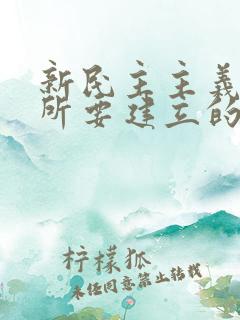 新民主主义
所要建立的
柠檬狐
未经同意禁止转载